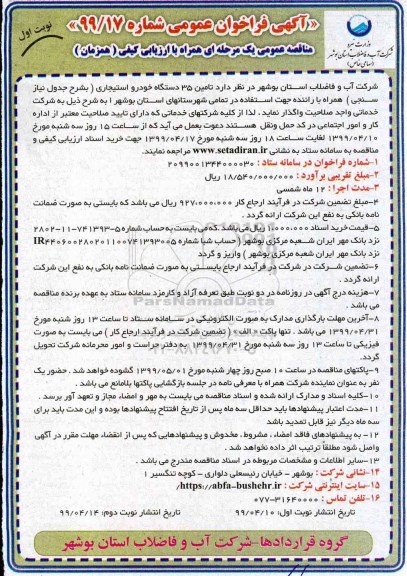 «آگهی فراخوان عمومی شماره ۹۹/۱۷»
نوبت اول
مناقصه عمومی یک مرحله ای همراه با ارزیابی کیفی ( همزمان )
شرکت آب و فاضلاب استان بوشهر
شرکت آب و فاضلاب استان بوشهر در نظر دارد تامین ۳۵ دستگاه خودرو استیجاری ( بشرح جدول نیاز
سنجی ) همراه با راننده جهت استفاده در تمامی شهرستانهای استان بوشهر را به شرح ذیل به شرکت
خدماتی واجد صلاحیت واگذار نماید . لذا از کلیه شرکتهای خدماتی که دارای تایید صلاحیت معتبر از اداره
کار و امور اجتماعی در کد حمل ونقل هستند دعوت بعمل می آید که از ساعت ۱۵ روز سه شنبه مورخ
۱۳۹۹/۰۴/۱۰ لغایت ساعت ۱۸ روز سه شنبه مورخ ۱۳۹۹/۰۴/۱۷ جهت خرید اسناد ارزیابی کیفی و
مناقصه به سامانه ستاد به نشانی www.setadiran.ir مراجعه نمایند.
۱-شماره فراخوان در سامانه ستاد : ۲۰۹۹۰۰۱۳۴۴۰۰۰۰۳۰
۲-مبلغ تقریبی برآورد : ۱۸/۵۴۰/۰۰۰/۰۰۰ ریال
۳-مدت اجرا : ۱۲ ماه شمسی
۴-مبلغ تضمین شرکت در فرآیند ارجاع کار ۹۲۷/۰۰۰/۰۰۰ ریال می باشد که بایستی به صورت ضمانت
نامه بانکی به نفع این شرکت ارائه گردد .
۵-قیمت خرید اسناد ۱/۰۰۰/۰۰۰ ریال می باشد .که می بایست به حساب شماره ۷۴۱۳۹۳۰۰۵-۱۱-۲۸۰۲
نزد بانک مهر ایران شعبه مرکزی بوشهر ( حساب شبا شماره IR۴۴۰۶۰۰۲۸۰۲۰۱۱۰۰۷۴۱۳۹۳۰۰۵
نزد بانک مهر ایران شعبه مرکزی بوشهر ) واریز و گردد
۶-تضمین شرکت در شرکت در فرآیند ارجاع بایستی به صورت ضمانت نامه بانکی به نفع این شرکت
ارائه گردد .
۷-هزینه درج آگهی در روزنامه در دو نوبت طبق تعرفه آزاد و کارمزد سامانه ستاد به عهده برنده مناقصه
می باشد .
۸-آخرین مهلت بارگذاری مدارک به صورت الکترونیکی در سامانه ستاد تا ساعت ۱۳ روز شنبه مورخ
۱۳۹۹/۰۴/۳۱ می باشد . تنها پاکت " الف" ( تضمین شرکت در فرآیند ارجاع کار ) می بایست به صورت
فیزیکی تا ساعت ۱۳ روز سه شنبه مورخ ۱۳۹۹/۰۴/۳۱ به دفتر حراست و امور محرمانه شرکت تحویل
گردد.
۹-پاکتهای مناقصه در ساعت ۱۰ صبح روز چهار شنبه مورخ ۱۳۹۹/۰۵/۰۱ گشوده خواهد شد . حضور یک
نفر به عنوان نماینده شرکت همراه با معرفی نامه در جلسه بازگشایی پاکتها بلامانع می باشد .
۱۰-کلیه اسناد و مدارک ارائه شده و اسناد مناقصه می بایست به مهر و امضاء مجاز و تعهد آور برسد .
۱۱-مدت اعتبار پیشنهادها باید حداقل سه ماه پس از تاریخ افتتاح پیشنهادها بوده و این مدت باید برای
سه ماه دیگر نیز قابل تمدید باشد
۱۲- به پیشنهادهای فاقد امضاء ، مشروط ، مخدوش و پیشنهادهایی که پس از انقضاء مهلت مقرر در آگهی
واصل شود مطلقاً ترتیب اثر داده نخواهد شد .
۱۳-سایر اطلاعات و مشخصات مربوطه در اسناد مناقصه مندرج می باشد .
۱۴-نشانی شرکت : بوشهر - خیابان رئیسعلی دلواری - کوچه تنگسیر ۱
۱۵-سایت اینترنتی شرکت : https://abfa-bushehr.ir/
۱۶-تلفن تماس : ۳۱۶۴۰۰۰۰-۰۷۷
تاریخ انتشار نوبت اول: ۹۹/۰۴/۱۰ تاریخ انتشار نوبت دوم: ۹۹/۰۴/۱۴
گروه قراردادها-شرکت آب و فاضلاب استان بوشهر